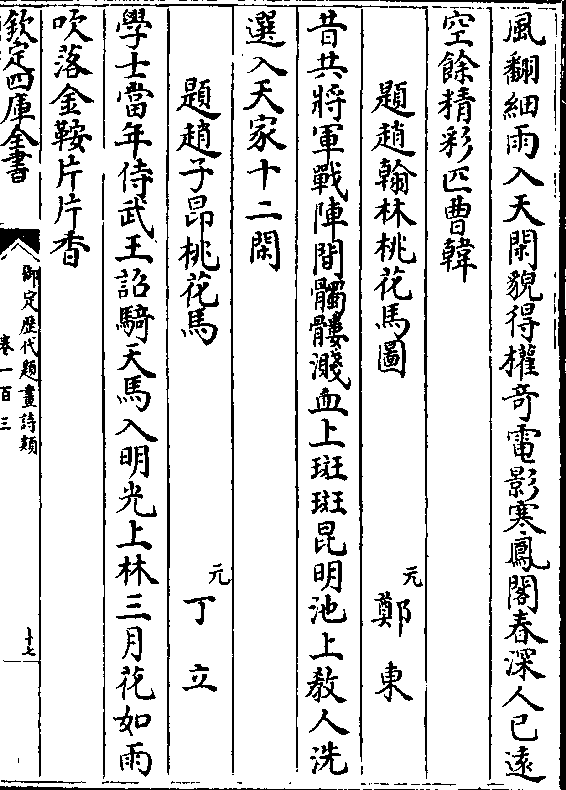 風翻細雨入天閑貌得權竒電影寒鳳閣春深人已遠
空餘精彩匹曹韓
題趙翰林桃花馬圖 元 鄭東
昔共將軍戰陣間髑髏濺血上斑斑昆明池上教人洗
選入天家十二閑
題趙子昂桃花馬 元 丁立
學士當年侍武王詔騎天馬入明光上林三月花如雨
吹落金鞍片片香
欽定四庫全書
御定歴代題畫詩類
卷一百三
十七